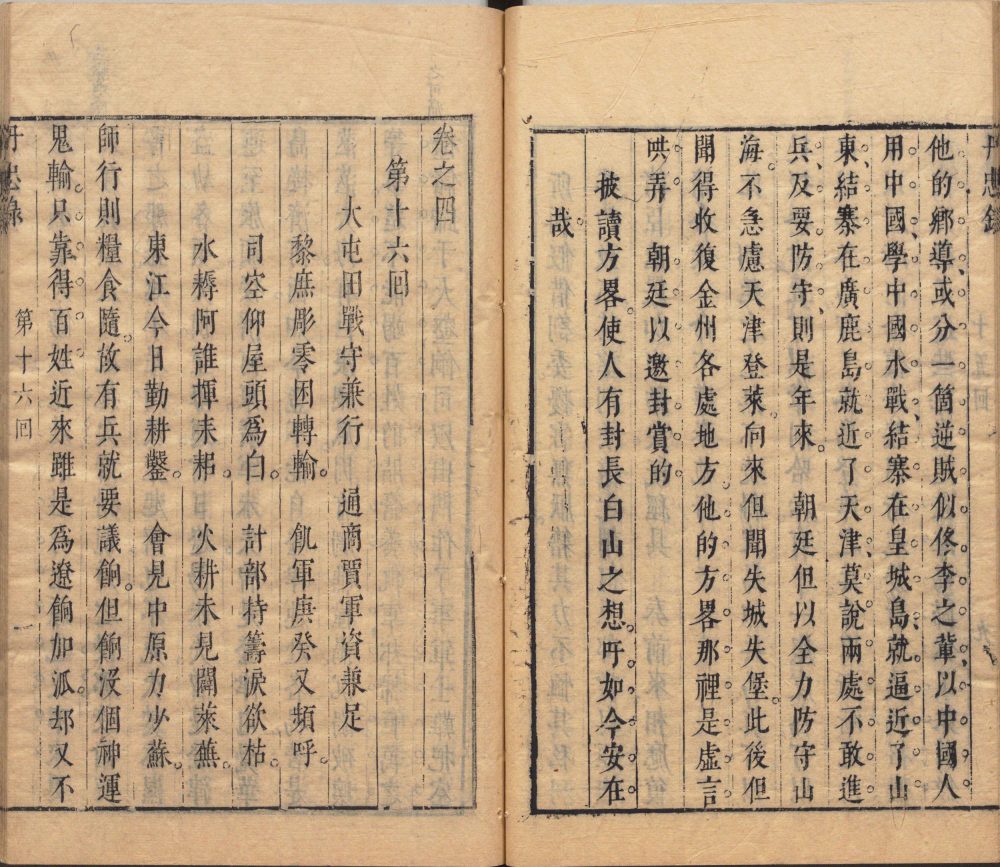 他的鄉導、或分一箇逆賊似佟李之輩、以中國人
用中國、學中國水戰、結寨在皇城島、就逼近了山
東、結寨在廣鹿島就近了天津、莫說兩處不敢進
兵、及要防守、則是年來。朝廷但以全力防守山
海。不急慮天津登萊。向來但聞失城失堡。此後但
聞得收復金州各處地方。他的方畧那裡是虛言
哄弄　朝廷以邀封賞的
披讀方畧。使人有封長白山之想。吁如今安在
哉。
卷之四
第十六回
大屯田戰守兼行　通商賈軍資兼足
黎庶彫零困轉輸。　飢軍庚癸又頻呼。
司空仰屋頭爲白。　計部持籌淚欲枯。
水耨阿誰揮耒耜。　火耕未見闢萊蕪。
東江今日勤耕鑿。　會見中原力少蘇。
師行則糧食隨。故有兵就要議餉。但餉沒個神運
鬼輸。只靠得百姓近來雖是爲遼餉加派。却又不
第十六回
一